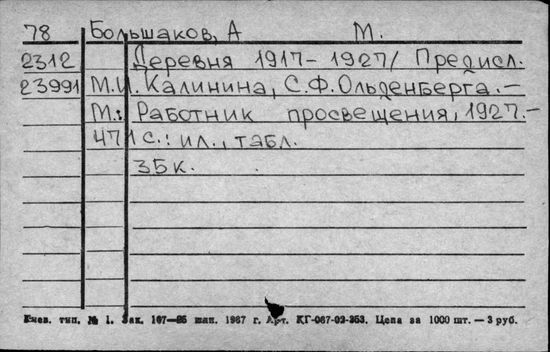 78 Большаков, А М.
2312 Деревня 1917-1927/ Предисл.
23991 М.И. Калинина, С.Ф. Ольденберга.-
М.: Работник просвещения, 1927.-
471 с.: ил., табл.
35к.
Киев. тип. № 1. Зак. 167—85 шап. 1967 г. Арт. КГ-067-02-353. Цена за 1000 шт. — 3 руб.